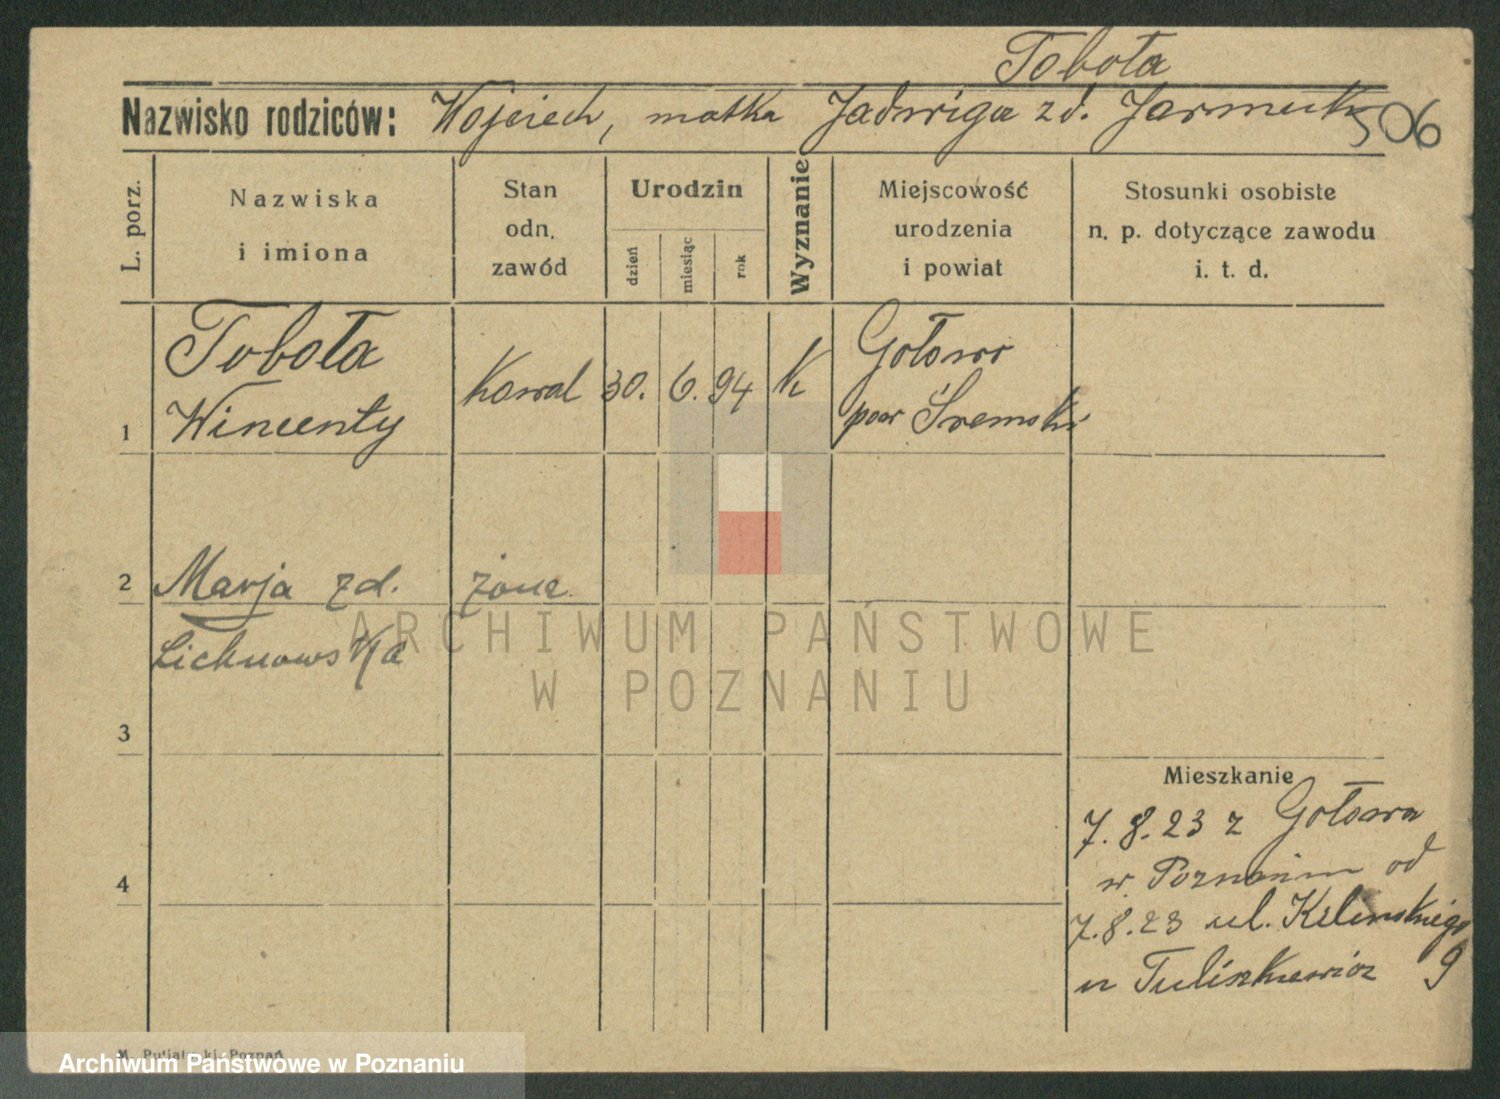 Toboła
Nazwisko rodziców: Wojciech, matka Jadwiga zd. Jarmuck 506
L. porz.
Nazwiska
i imiona
Stan
odn.
zawód
Urodzin
dzień
miesiąc
rok
Wyznanie
Miejscowość
urodzenia
i powiat
Stosunki osobiste
n. p. dotyczące zawodu
i. t. d.
1
Toboła
Wincenty
Kowal
30. 6. 94
K
Gołowo
pow Śremski
2
Marja zd.
Lichnowska
żona
3
4
Mieszkanie
7.8.23 z Gołowa
w Poznaniu od
7.8.23 ul. Kilinskiego
u Tuliszkiewicz 9
ARCHIWUM PAŃSTWOWE
W POZNANIU
Poznań
Archiwum Państwowe w Poznaniu